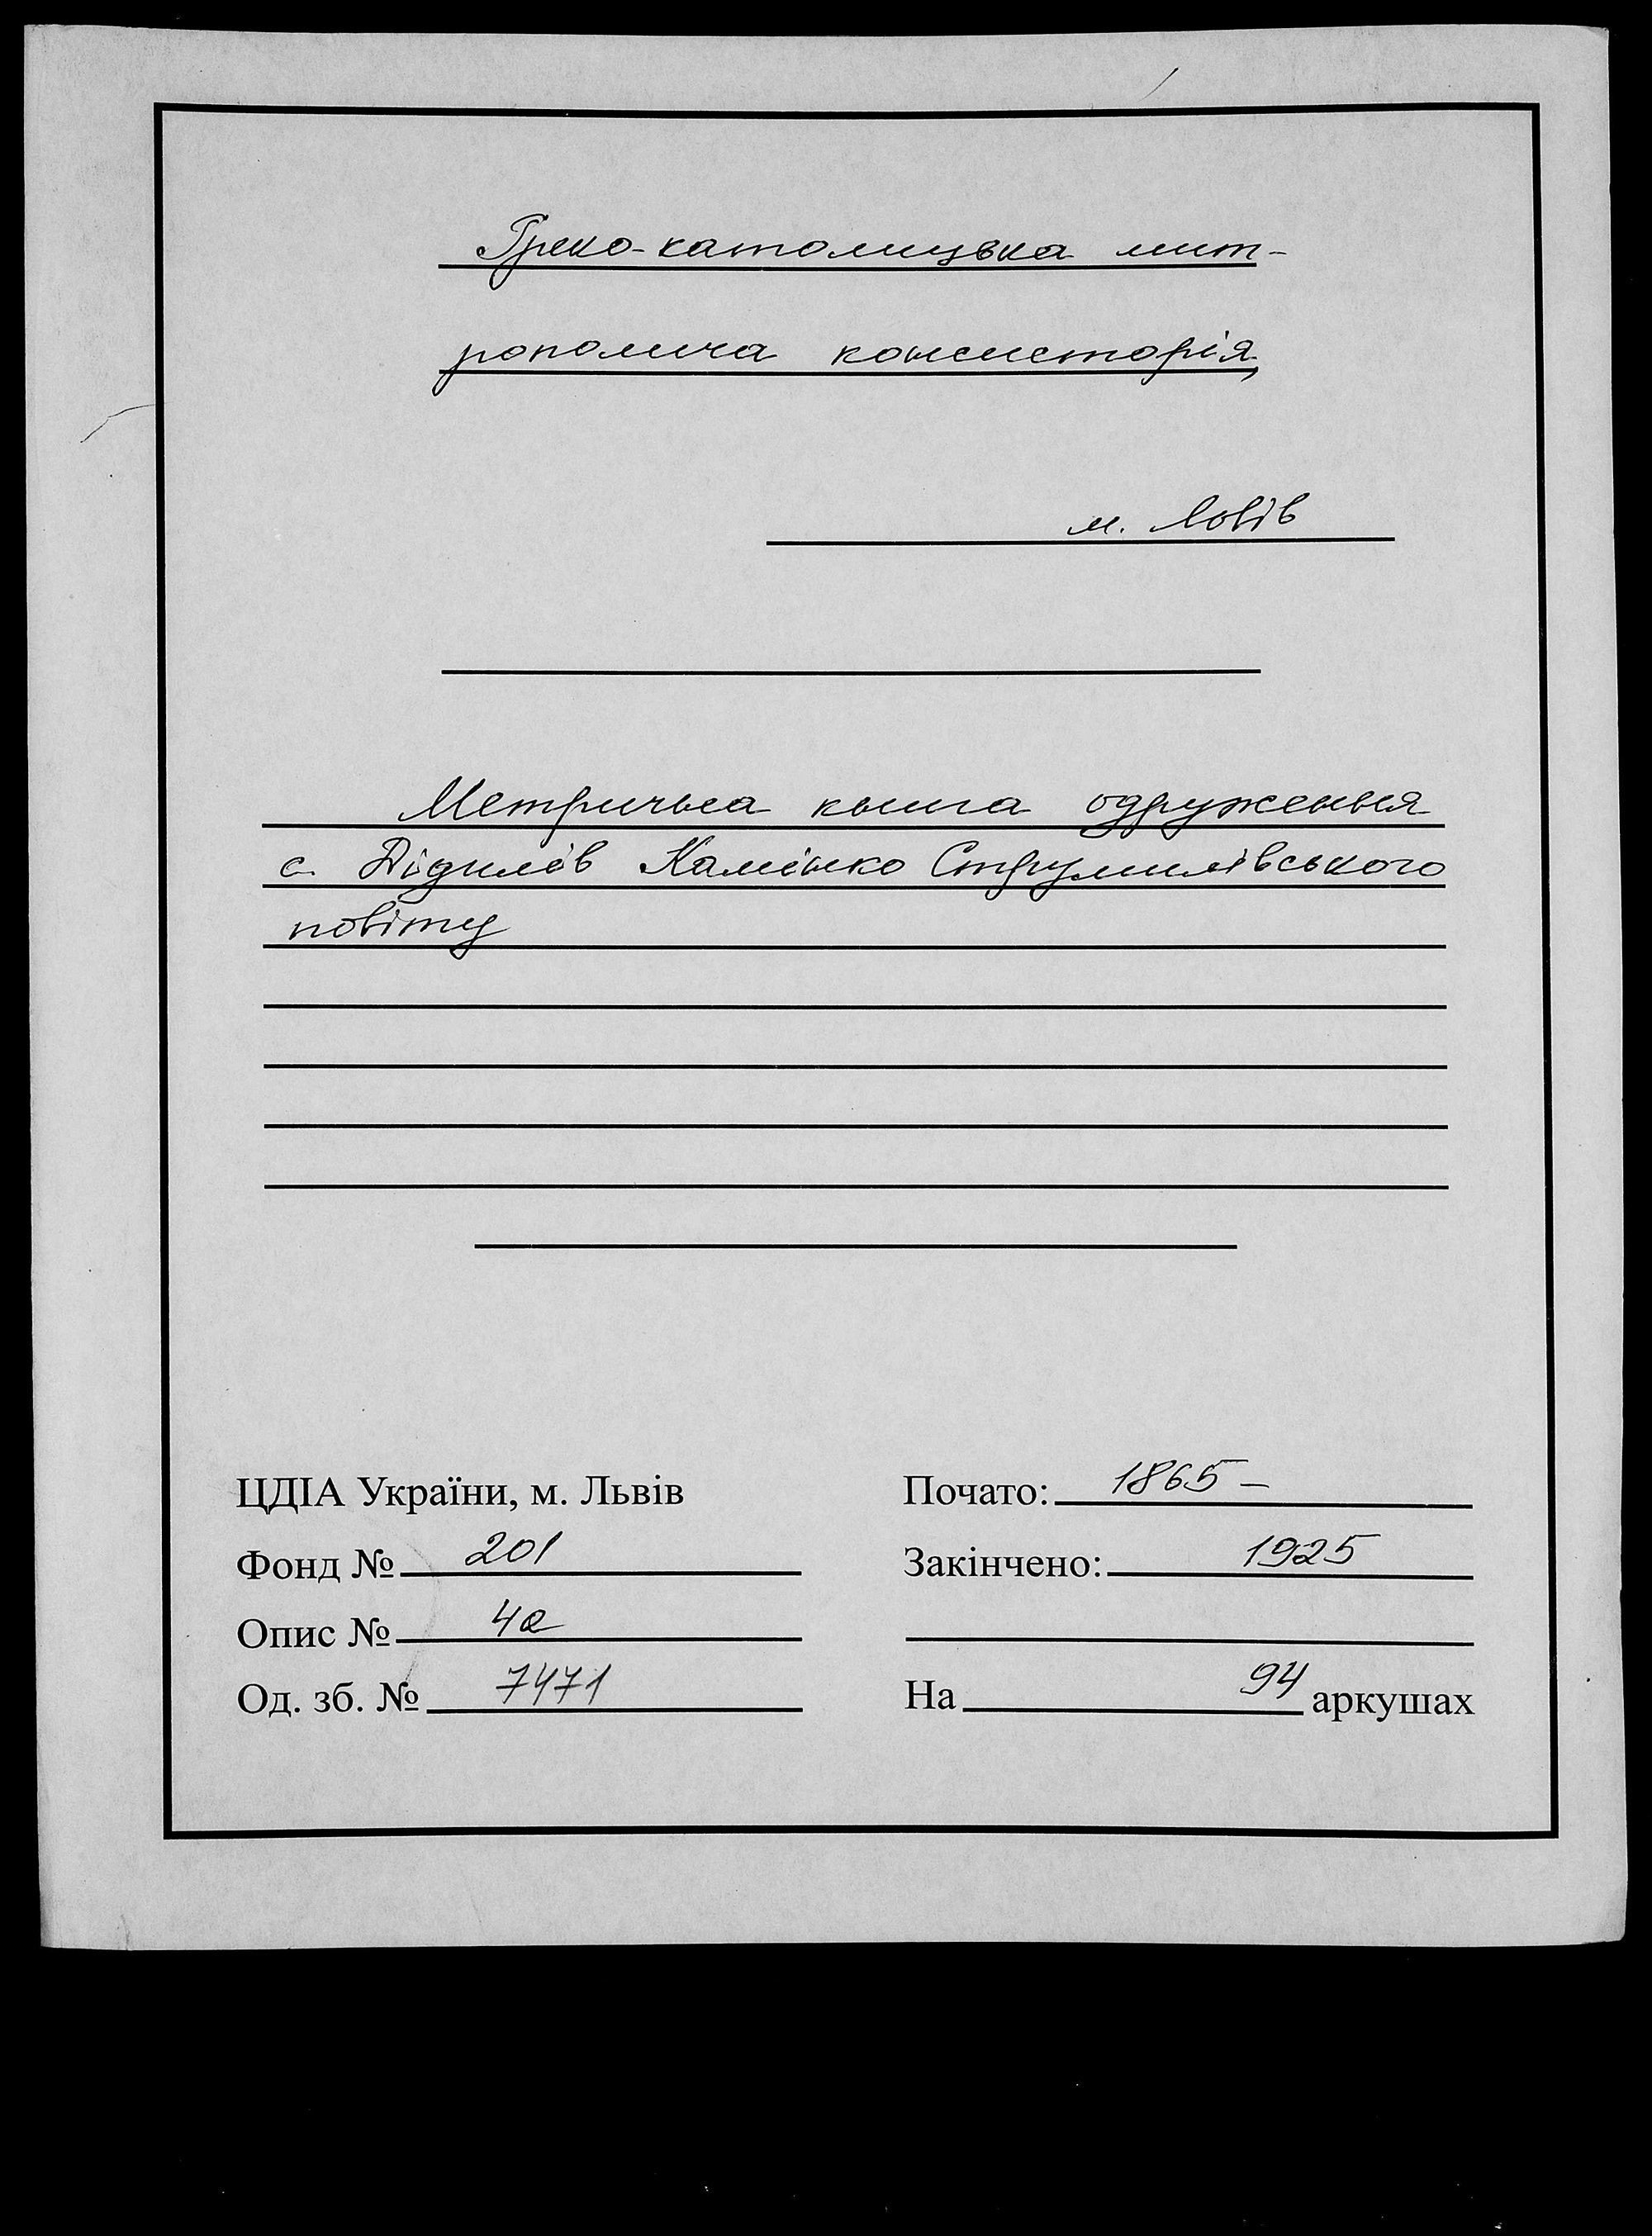 Греко-католицька мит-
рополича консисторія,
м. Львів
Метрична книга одруження
с. Дідилів Камінко Струмилівського
повіту
ЦДІА України, м. Львів
Почато: 1865 –
Фонд № 201
Закінчено: 1925
Опис № 4а
Од. зб. № 7471
На 94 аркушах